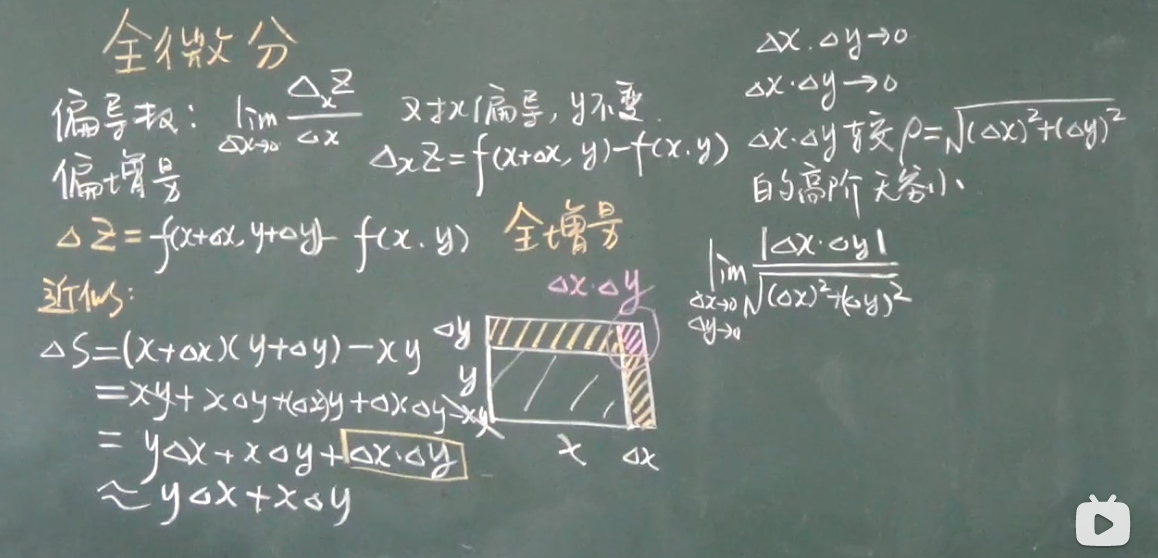 全微分
偏导数: lim Δx→0 ΔxZ/Δx 对x偏导,y不变.
偏增量 ΔxZ=f(x+Δx,y)-f(x.y)
ΔZ=f(x+Δx,y+Δy)-f(x.y) 全增量
近似:
ΔS=(x+Δx)(y+Δy)-xy
=xy+xΔy+(Δx)y+ΔxΔy-xy
=yΔx+xΔy+Δx·Δy
≈yΔx+xΔy
Δx·Δy
Δy
y
x Δx
Δx.Δy→0
Δx·Δy→0
Δx·Δy
ρ=√(Δx)²+(Δy)²
的高阶无穷小、
lim Δx→0 Δy→0 |Δx·Δy|/√(Δx)²+(Δy)²